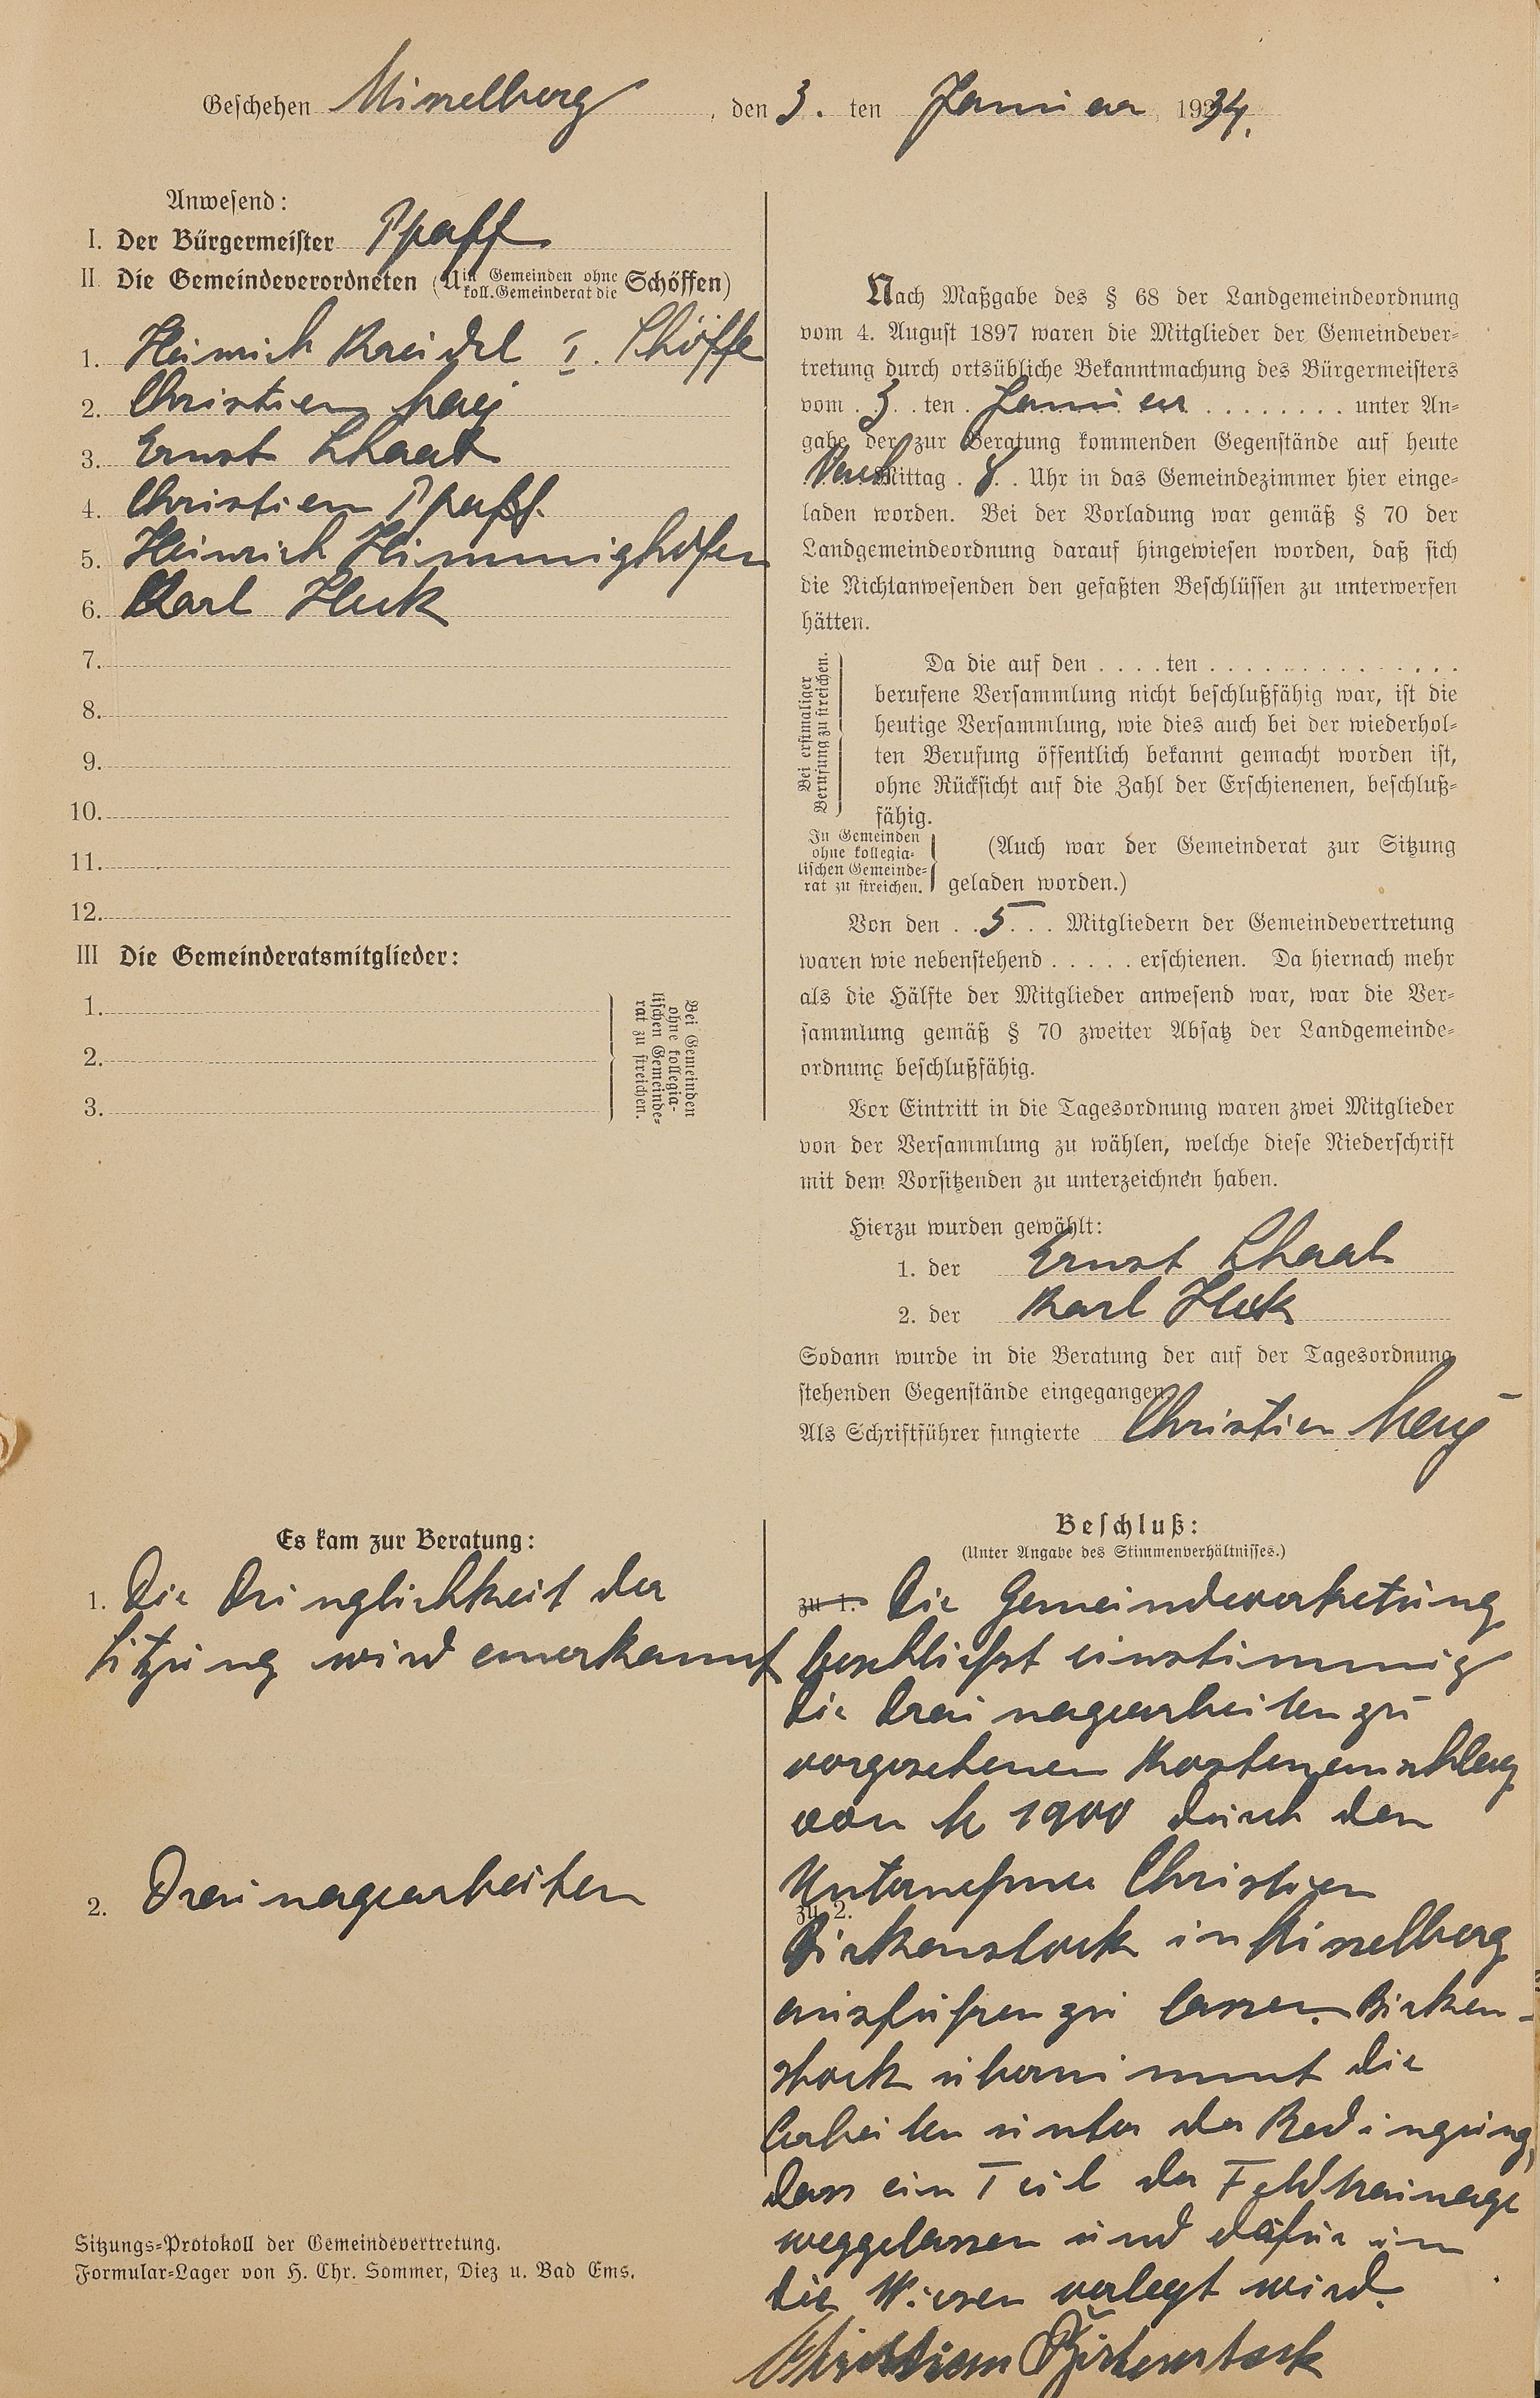 Geschehen Misselberg, den 3. ten Januar 1934.
Anwesend:
I. Der Bürgermeister Pfaff
II Die Gemeindeverordneten (U in Gemeinden ohne koll. Gemeinderat die Schöffen)
1. Heinrich Kreidel I. Schöffe
2. Christian May
3. Ernst Schaab
4. Christian Pfaff.
5. Heinrich Himmighofen
6. Karl Heck
7.
8.
9.
10.
11.
12.
III Die Gemeinderatsmitglieder:
1.
2.
3.
Bei Gemeinden
ohne kollegia-
lischen Gemeinde-
rat zu streichen.
Nach Maßgabe des § 68 der Landgemeindeordnung
vom 4. August 1897 waren die Mitglieder der Gemeindever-
tretung durch ortsübliche Bekanntmachung des Bürgermeisters
vom 3. ten Januar unter An-
gabe der zur Beratung kommenden Gegenstände auf heute
Nach Mittag 8 Uhr in das Gemeindezimmer hier einge-
laden worden. Bei der Vorladung war gemäß § 70 der
Landgemeindeordnung darauf hingewiesen worden, daß sich
die Nichtanwesenden den gefaßten Beschlüssen zu unterwerfen
hätten.
Bei erstmaliger
Berufung zu streichen.
Da die auf den . . . . ten . . . . . . . . . . . . . .
berufene Versammlung nicht beschlußfähig war, ist die
heutige Versammlung, wie dies auch bei der wiederhol-
ten Berufung öffentlich bekannt gemacht worden ist,
ohne Rücksicht auf die Zahl der Erschienenen, beschluß-
fähig.
In Gemeinden
ohne kollegia-
lischen Gemeinde-
rat zu streichen.
(Auch war der Gemeinderat zur Sitzung
geladen worden.)
Von den . . 5 . . . Mitgliedern der Gemeindevertretung
waren wie nebenstehend . . . . . erschienen. Da hiernach mehr
als die Hälfte der Mitglieder anwesend war, war die Ver-
sammlung gemäß § 70 zweiter Absatz der Landgemeinde-
ordnung beschlußfähig.
Vor Eintritt in die Tagesordnung waren zwei Mitglieder
von der Versammlung zu wählen, welche diese Niederschrift
mit dem Vorsitzenden zu unterzeichnen haben.
Hierzu wurden gewählt:
1. der Ernst Schaab
2. der Karl Heck
Sodann wurde in die Beratung der auf der Tagesordnung
stehenden Gegenstände eingegangen.
Als Schriftführer fungierte Christian May
Es kam zur Beratung:
1. Die Dringlichkeit der
Sitzung wird anerkannt
2. Drainagearbeiten
Beschluß:
(Unter Angabe des Stimmenverhältnisses.)
zu 1. Die Gemeindevertretung
beschließt einstimmig
die Drainagearbeiten zu
vorgesehenen Kostenanschlag
von M 1900 durch den
Unternehmer Christian
zu 2.
Birkenstock in Misselberg
ausführen zu lassen. Birken-
stock übernimmt die
Arbeiten unter der Bedingung,
dass ein Teil der Felddrainage
weggelassen und dafür in
die Wiesen verlegt wird.
Christian Birkenstock
Sitzungs-Protokoll der Gemeindevertretung.
Formular-Lager von H. Chr. Sommer, Diez u. Bad Ems.